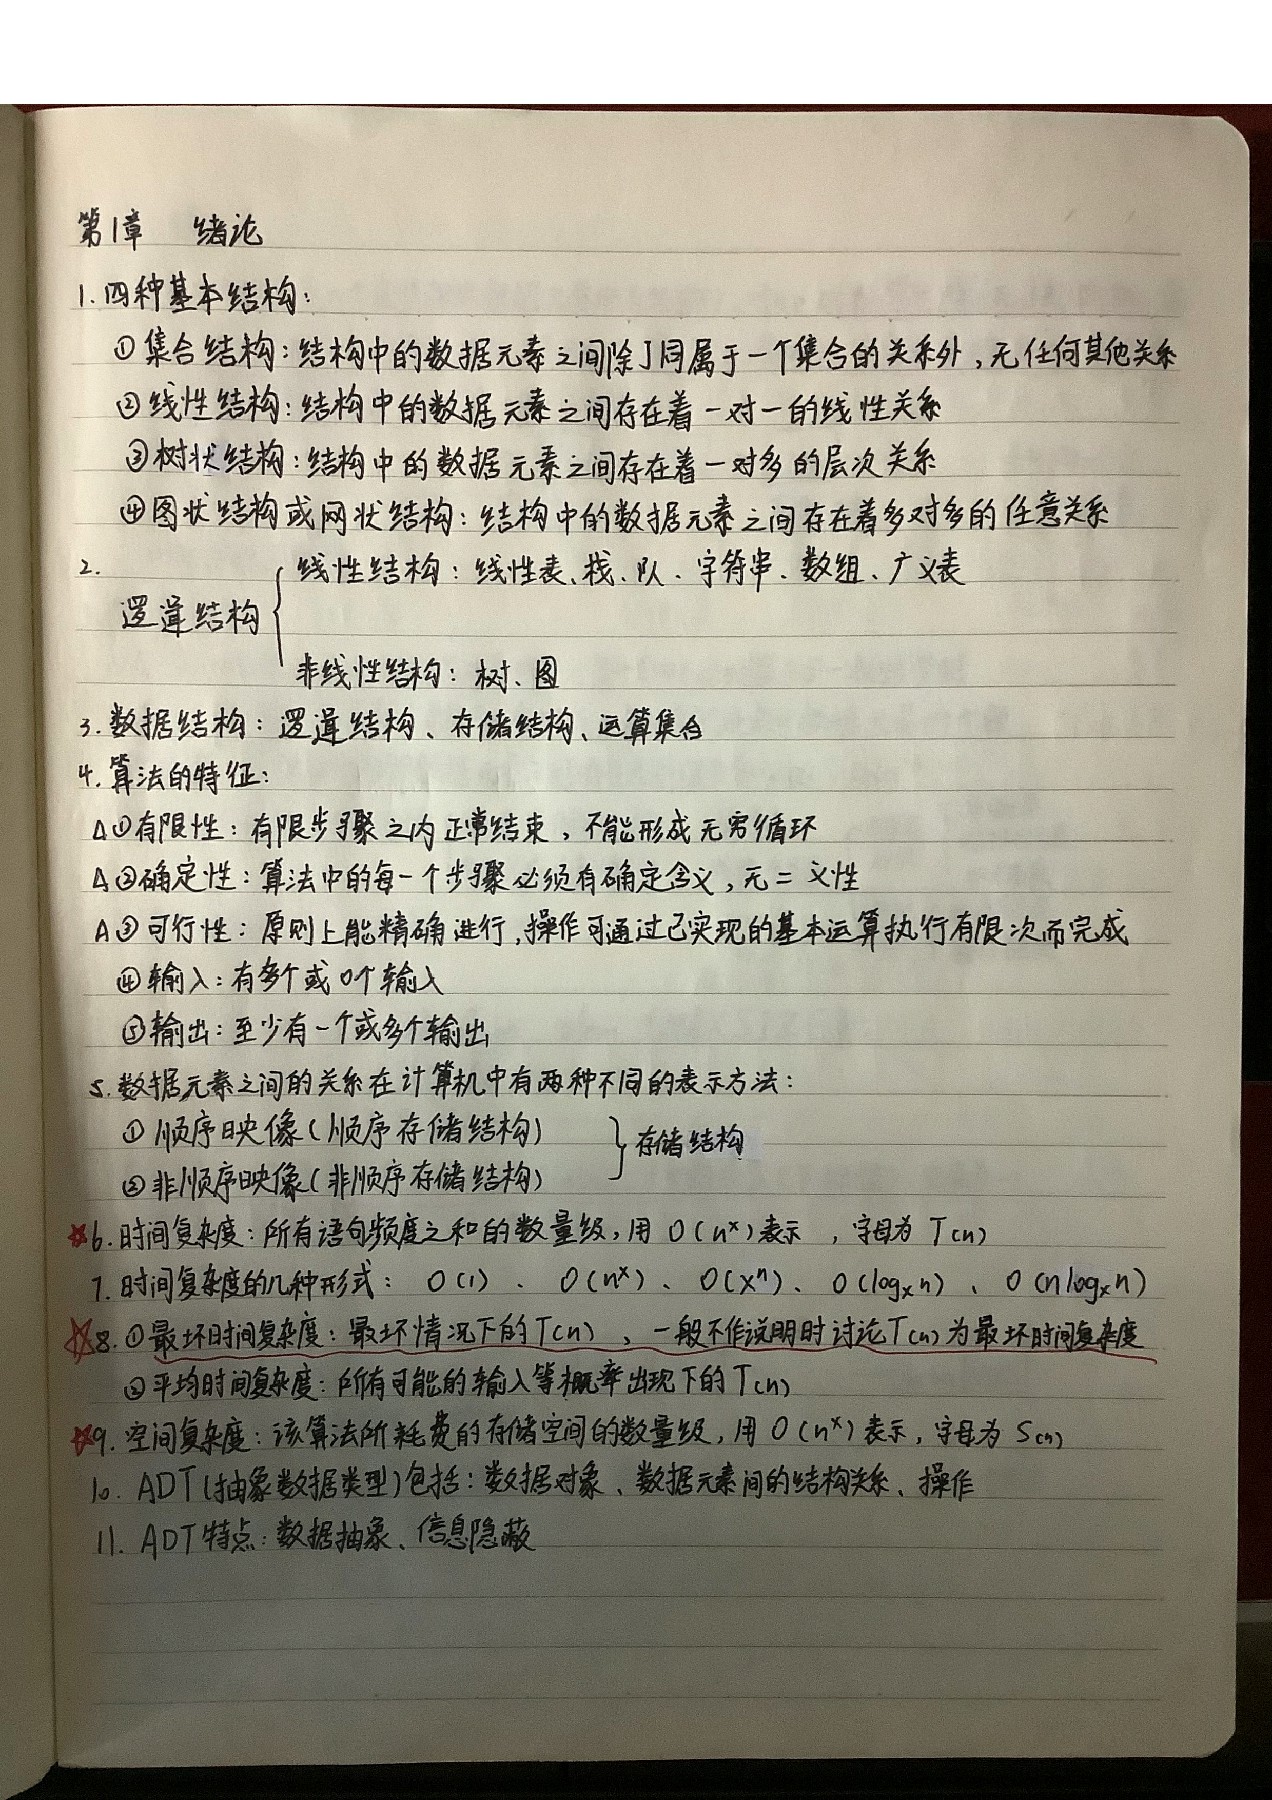 第1章 绪论
1.四种基本结构:
①集合结构:结构中的数据元素之间除了同属于一个集合的关系外,无任何其他关系
②线性结构:结构中的数据元素之间存在着一对一的线性关系
③树状结构:结构中的数据元素之间存在着一对多的层次关系
④图状结构或网状结构:结构中的数据元素之间存在着多对多的任意关系
2.
线性结构:线性表、栈、队、字符串、数组、广义表
逻辑结构
非线性结构:树、图
3.数据结构:逻辑结构、存储结构、运算集合
4.算法的特征:
△①有限性:有限步骤之内正常结束,不能形成无穷循环
△②确定性:算法中的每一个步骤必须有确定含义,无二义性
△③可行性:原则上能精确进行,操作可通过已实现的基本运算执行有限次而完成
④输入:有多个或0个输入
⑤输出:至少有一个或多个输出
5.数据元素之间的关系在计算机中有两种不同的表示方法:
①顺序映像(顺序存储结构)
}存储结构
②非顺序映像(非顺序存储结构)
☆6.时间复杂度:所有语句频度之和的数量级,用O(nˣ)表示,字母为T(n)
7.时间复杂度的几种形式: O(1)、O(nˣ)、O(xⁿ)、O(logₓn)、O(nlogₓn)
☆8.①最坏时间复杂度:最坏情况下的T(n),一般不作说明时讨论T(n)为最坏时间复杂度
②平均时间复杂度:所有可能的输入等概率出现下的T(n)
☆9.空间复杂度:该算法所耗费的存储空间的数量级,用O(nˣ)表示,字母为S(n)
10. ADT(抽象数据类型)包括:数据对象、数据元素间的结构关系、操作
11. ADT特点:数据抽象、信息隐蔽